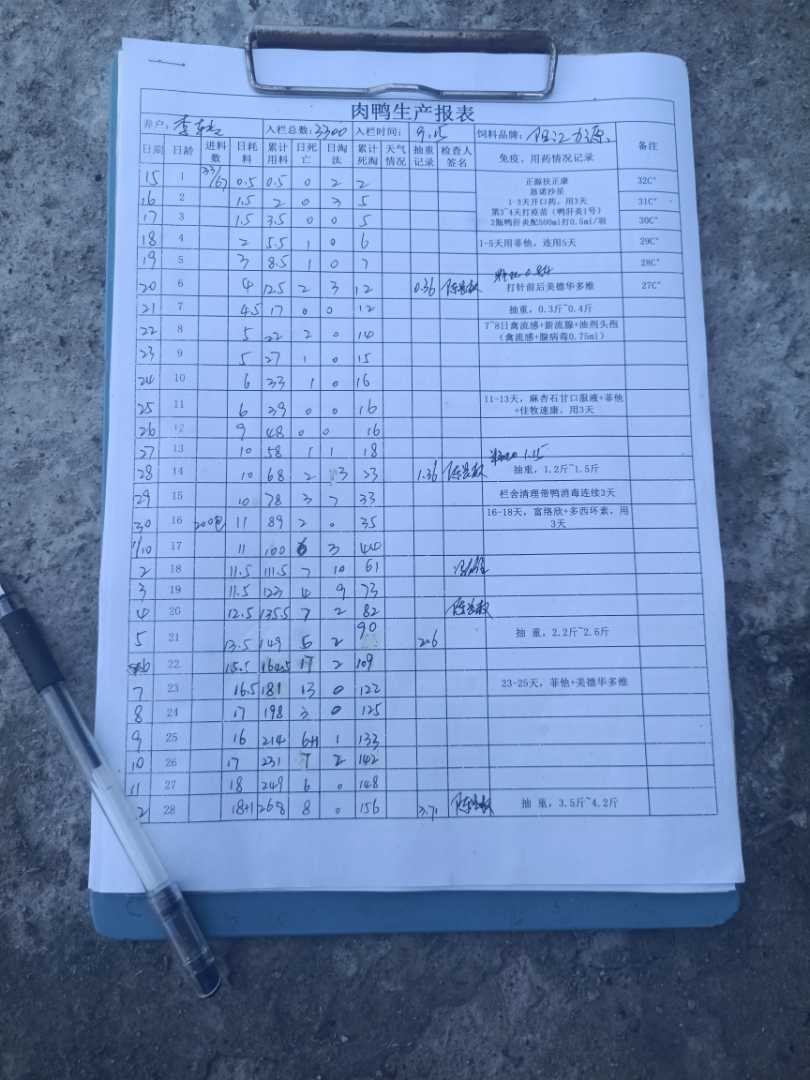 肉鸭生产报表
养户: 李 入栏总数: 3300 入栏时间: 9.15 饲料品牌: 阳江力源 备注
日期 日龄 进料数 日耗料 累计用料 日死亡 日淘汰 累计死淘 天气情况 抽重记录 检查人签名 免疫、用药情况记录
15 1 33/67 0.5 0.5 0 2 2 正源扶正康 32C°
恩诺沙星
16 2 1.5 2 0 3 5 1-3天开口药，用3天 31C°
第3~4天打疫苗（鸭肝炎1号）
17 3 1.5 3.5 0 0 5 2瓶鸭肝炎配500ml打0.5ml/羽 30C°
18 4 2 5.5 1 0 6 1-5天用菲他，连用5天 29C°
19 5 3 8.5 1 0 7 28C°
20 6 4 12.5 2 3 12 0.36 打针前后美德华多维 27C°
21 7 4.5 17 0 0 12 抽重，0.3斤~0.4斤
22 8 5 22 2 0 14 7~8日禽流感+新流腺+油剂头孢（禽流感+腺病毒0.75ml）
23 9 5 27 1 0 15
24 10 6 33 1 0 16
25 11 6 39 0 0 16 11-13天，麻杏石甘口服液+菲他+佳牧速康，用3天
26 12 9 48 0 0 16
27 13 10 58 1 1 18
1.15
28 14 10 68 2 3 23 1.36 抽重，1.2斤~1.5斤
29 15 10 78 3 7 33 栏舍清理带鸭消毒连续3天
30 16 200包 11 89 2 0 35 16-18天，富络欣+多西环素，用3天
1/10 17 11 100 6 3 44
2 18 11.5 111.5 7 10 61
3 19 11.5 123 4 9 73
4 20 12.5 135.5 7 2 82
5 21 13.5 149 6 2 90 2.6 抽 重，2.2斤~2.6斤
6 22 15.5 164.5 17 2 109
7 23 16.5 181 13 0 122 23-25天，菲他+美德华多维
8 24 17 198 3 0 125
9 25 16 214 6+1 1 133
10 26 17 231 7 2 142
11 27 18 249 6 0 148
12 28 18+1 268 8 0 156 3.71 抽 重，3.5斤~4.2斤